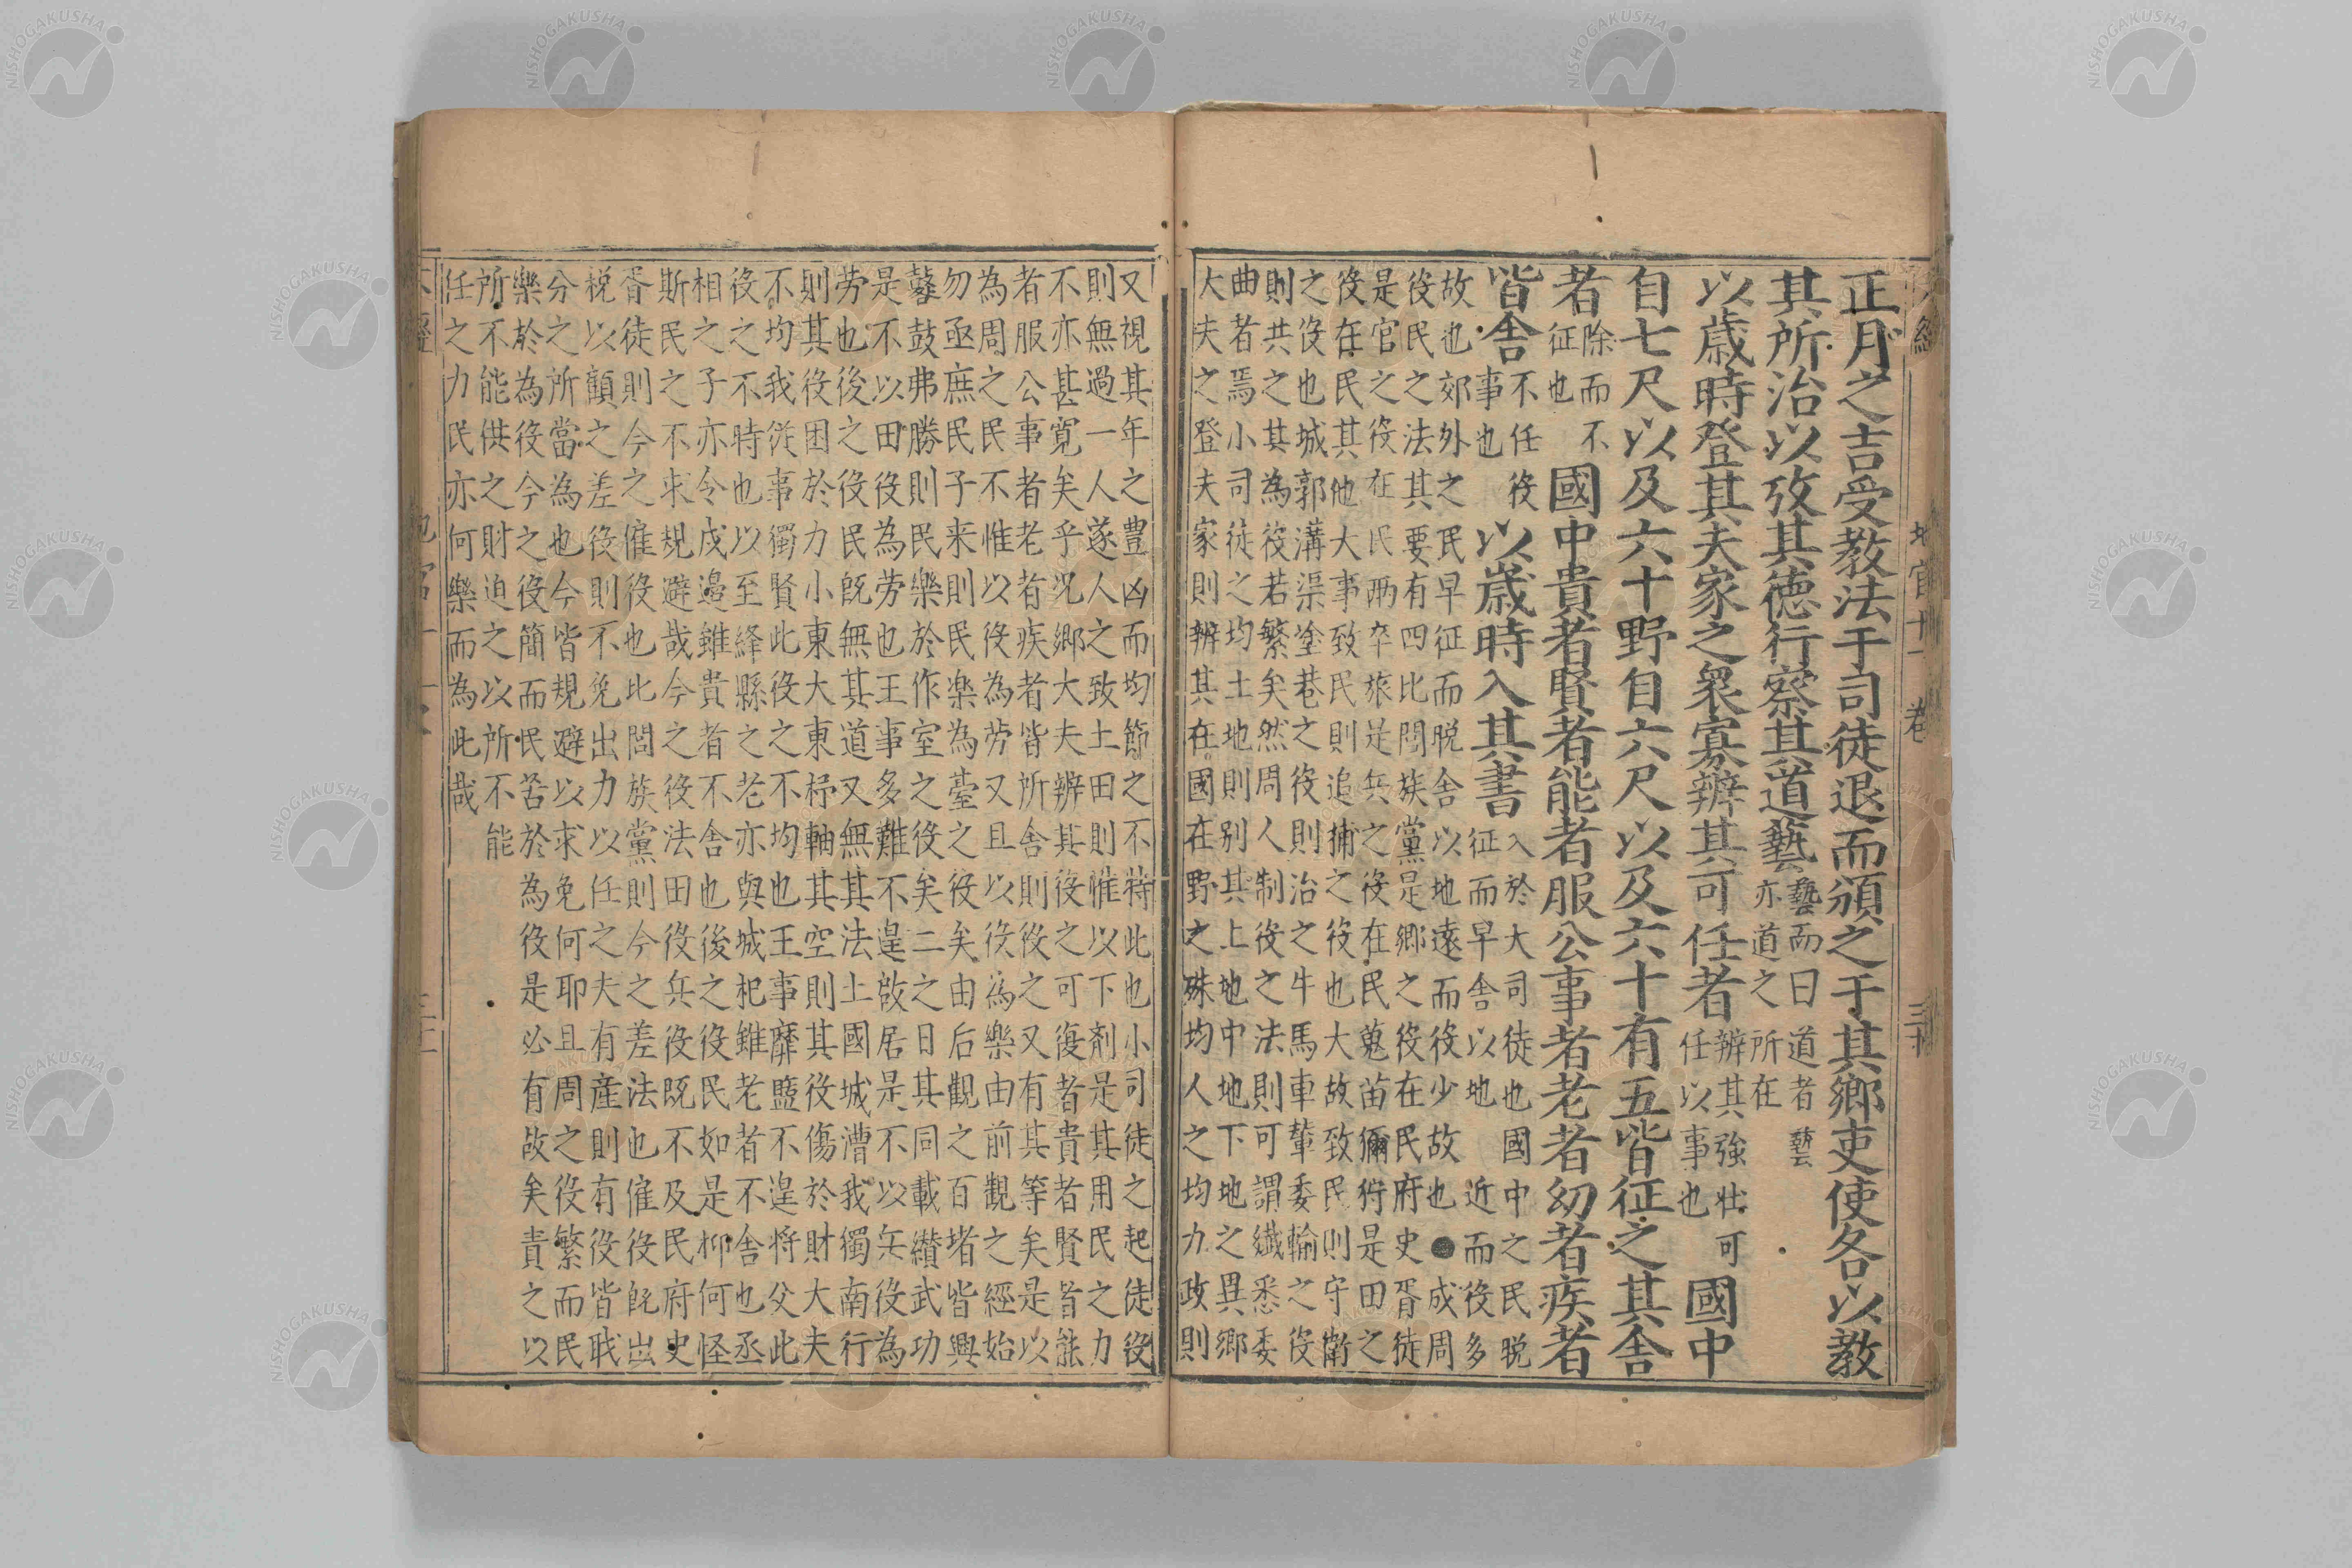 正月之吉受教法于司徒退而頒之于其鄉吏使各以教
其所治以攷其德行察其道藝藝而曰道者藝
亦道之所在
以歲時登其夫家之衆寡辨其可任者辨其強壯可
任以事也國中
自七尺以及六十野自六尺以及六十有五皆征之其舍
者除而不
征也國中貴者賢者能者服公事者老者幼者疾者
皆舍不任役
事也以歲時入其書入於大司徒也國中之民脫
征而早舍以地近而役多
故也郊外之民早征而脫舍以地遠而役少故也●成周
役民之法其要有四比閭族黨是鄉之役在民府史胥徒
是官之役在民兩卒旅是兵之役在民蒐苗獮狩是田之
役在民其他大事致民則追捕之役也大故致民則守衛
之役也城郭溝渠塗巷之役則治之牛馬車輦委輸之役
則共之其為役若繁矣然周人制役之法則可謂纖悉委
曲者焉小司徒之均土地則别其上地中地下地之異鄉
大夫之登夫家則辨其在國在野之殊均人之均力政則
又視其年之豐凶而均節之不特此也小司徒之起徒役
則無過一人遂人之致土田則惟以下剤是其用民之力
不亦甚寛矣乎況鄉大夫辨其役之可復者貴者賢者能
者服公事者老者疾者皆所舍則役之又有其等矣是以
為周之民不惟以役為劳又且以役為樂由前觀之經始
勿亟庶民子来則民楽為臺之役矣由后觀之百堵皆興
鼛鼓弗勝則民樂於作室之役矣二之日其同載纘武功
是不以田役為劳也王事多難不遑啟居是不以兵役為
劳也後之役民旣無其道又無其法土國城漕我獨南行
則其役困於力小東大東杼軸其空則其役傷於財大夫
不均我従事獨賢此役之不均也王事靡盬不遑将父此
役之不時也以至絳縣之老亦與城杞雖老者不舍也丞
相之子亦令戍邉雖貴者不舍也後之役民如是柳何怪
斯民之不求規避哉今之役法田役兵役旣不及民府史
胥徒則今之催役也比閭族黨則今之差法也催役旣出
税以顧之差役則不免出力以任之夫有産則有役皆職
分之所當為也今皆規避以求免何耶且周之役繁而民
樂於為役今之役簡而民苦於為役是必有故矣責之以
所不能供之財迫之以所不能
任之力民亦何樂而為此哉